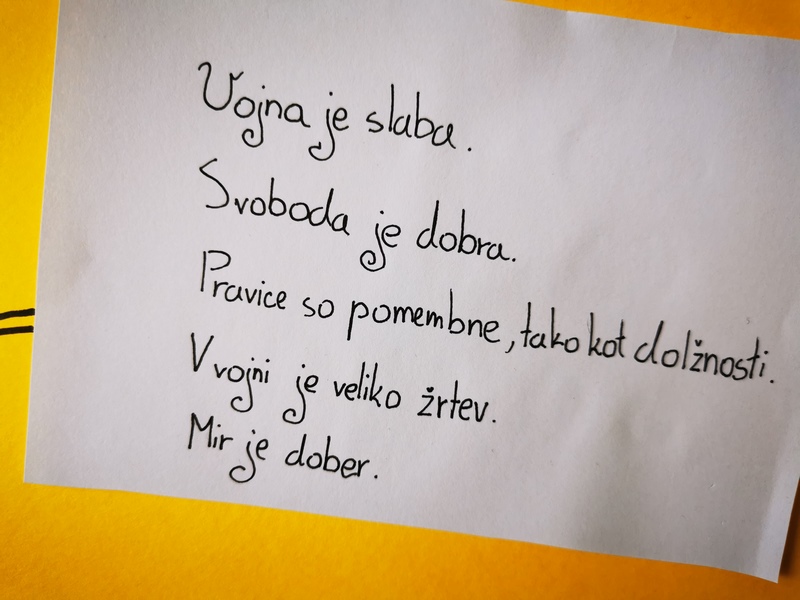 Vojna je slaba.
Svoboda je dobra.
Pravice so pomembne, tako kot dolžnosti.
V vojni je veliko žrtev.
Mir je dober.